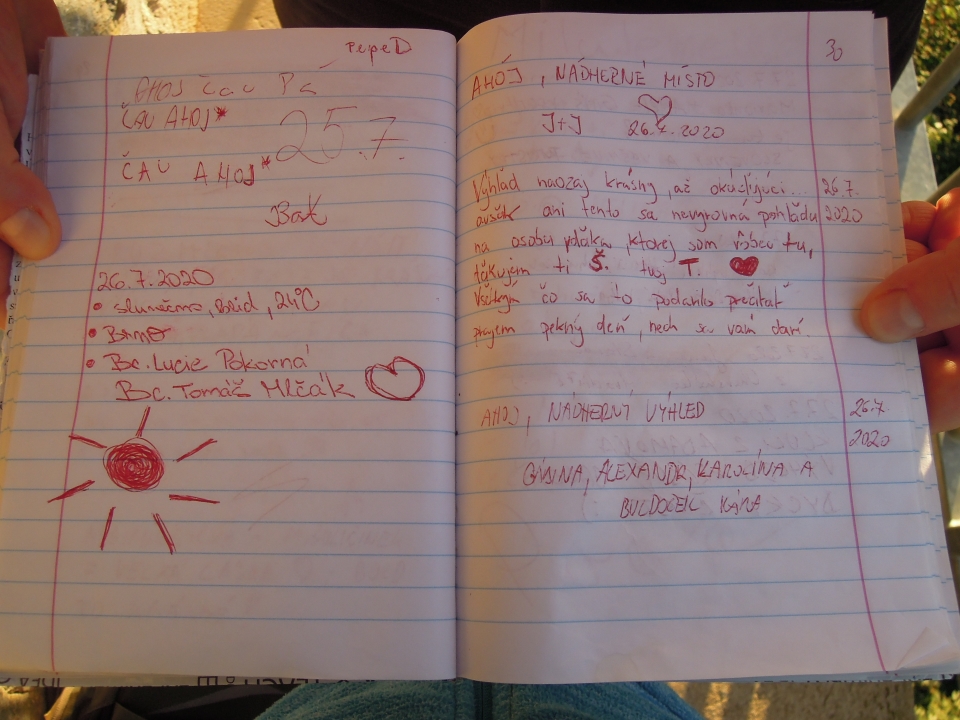 PepeD
AHOJ Čau Pá
ČAU AHOJ*
25.7.
ČAU AHOJ*
26.7.2020
• slunečno, klid, 24°C
• Brno
• Bc. Lucie Pokorná
Bc. Tomáš Mlčák
30
AHOJ, NÁDHERNÉ MÍSTO
J+J 26.7.2020
Výhľad naozaj krásny, až okúzľujúci... 26.7.
avšak ani tento sa nevyrovná pohľadu 2020
na osobu vďaka ktorej som vôbec tu,
ďakujem ti Š. tvoj T.
Všetkým čo sa to podarilo prečítať
prajem pekný deň, nech sa vám darí.
AHOJ, NÁDHERNÝ VÝHLED 26.7.
2020
ALEXANDR, KAROLÍNA A
BULDOČEK